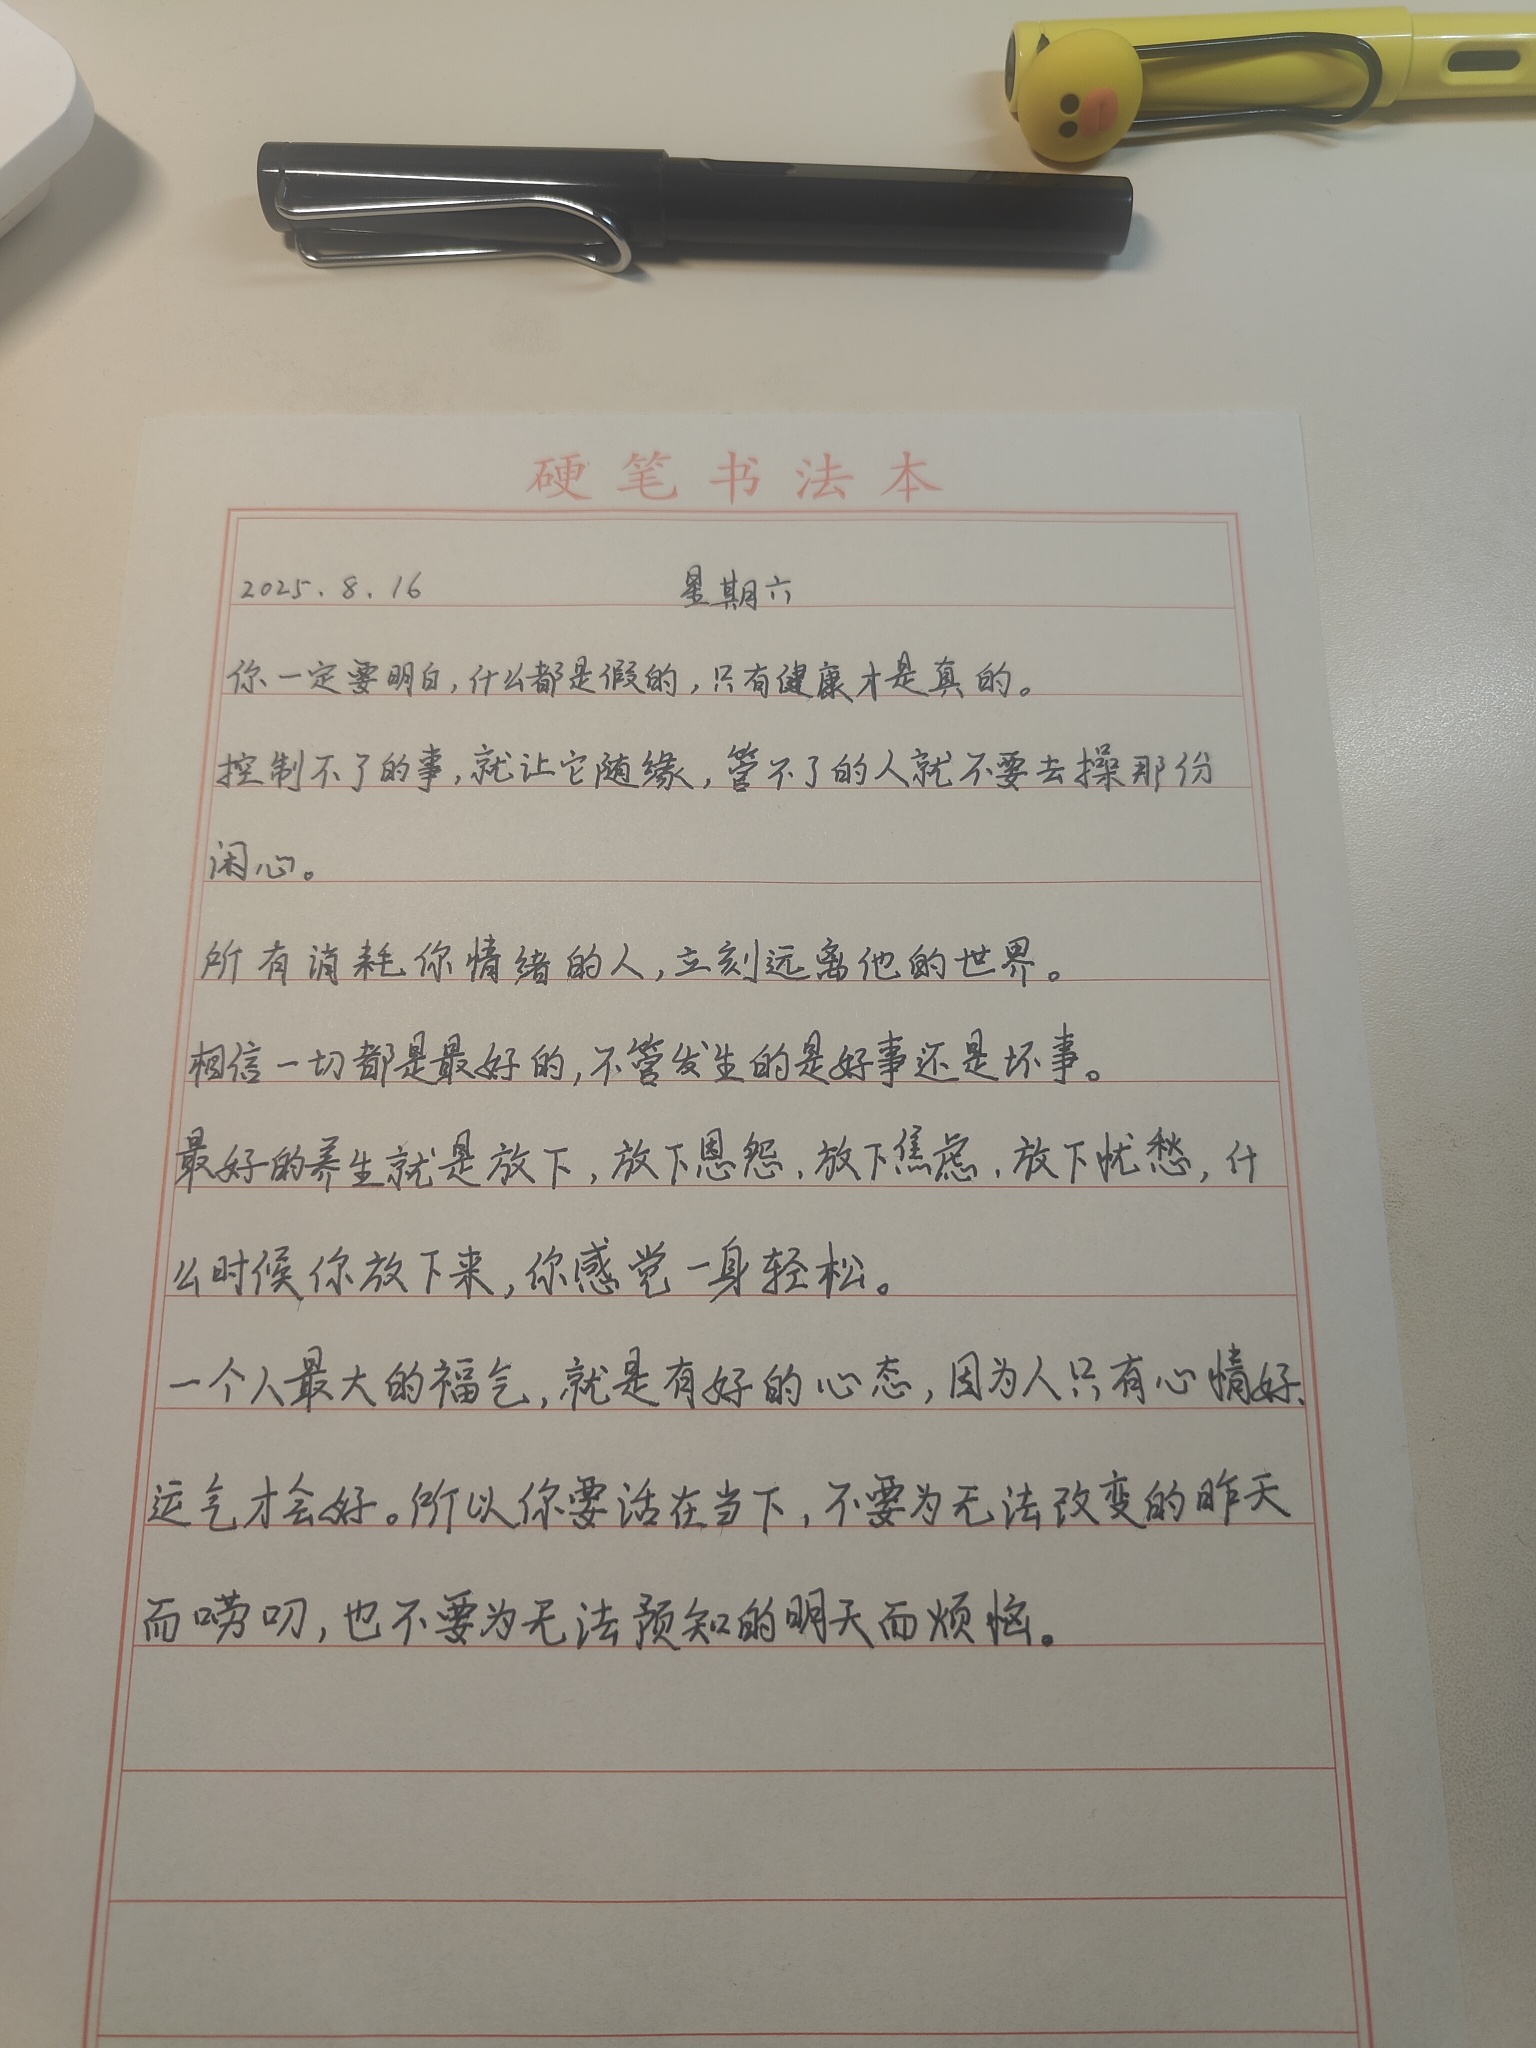 硬笔书法本
2025.8.16 星期六
你一定要明白,什么都是假的,只有健康才是真的。
控制不了的事,就让它随缘,管不了的人就不要去操那份
闲心。
所有消耗你情绪的人,立刻远离他的世界。
相信一切都是最好的,不管发生的是好事还是坏事。
最好的养生就是放下,放下恩怨,放下焦虑,放下忧愁,什
么时候你放下来,你感觉一身轻松。
一个人最大的福气,就是有好的心态,因为人只有心情好、
运气才会好。所以你要活在当下,不要为无法改变的昨天
而唠叨,也不要为无法预知的明天而烦恼。